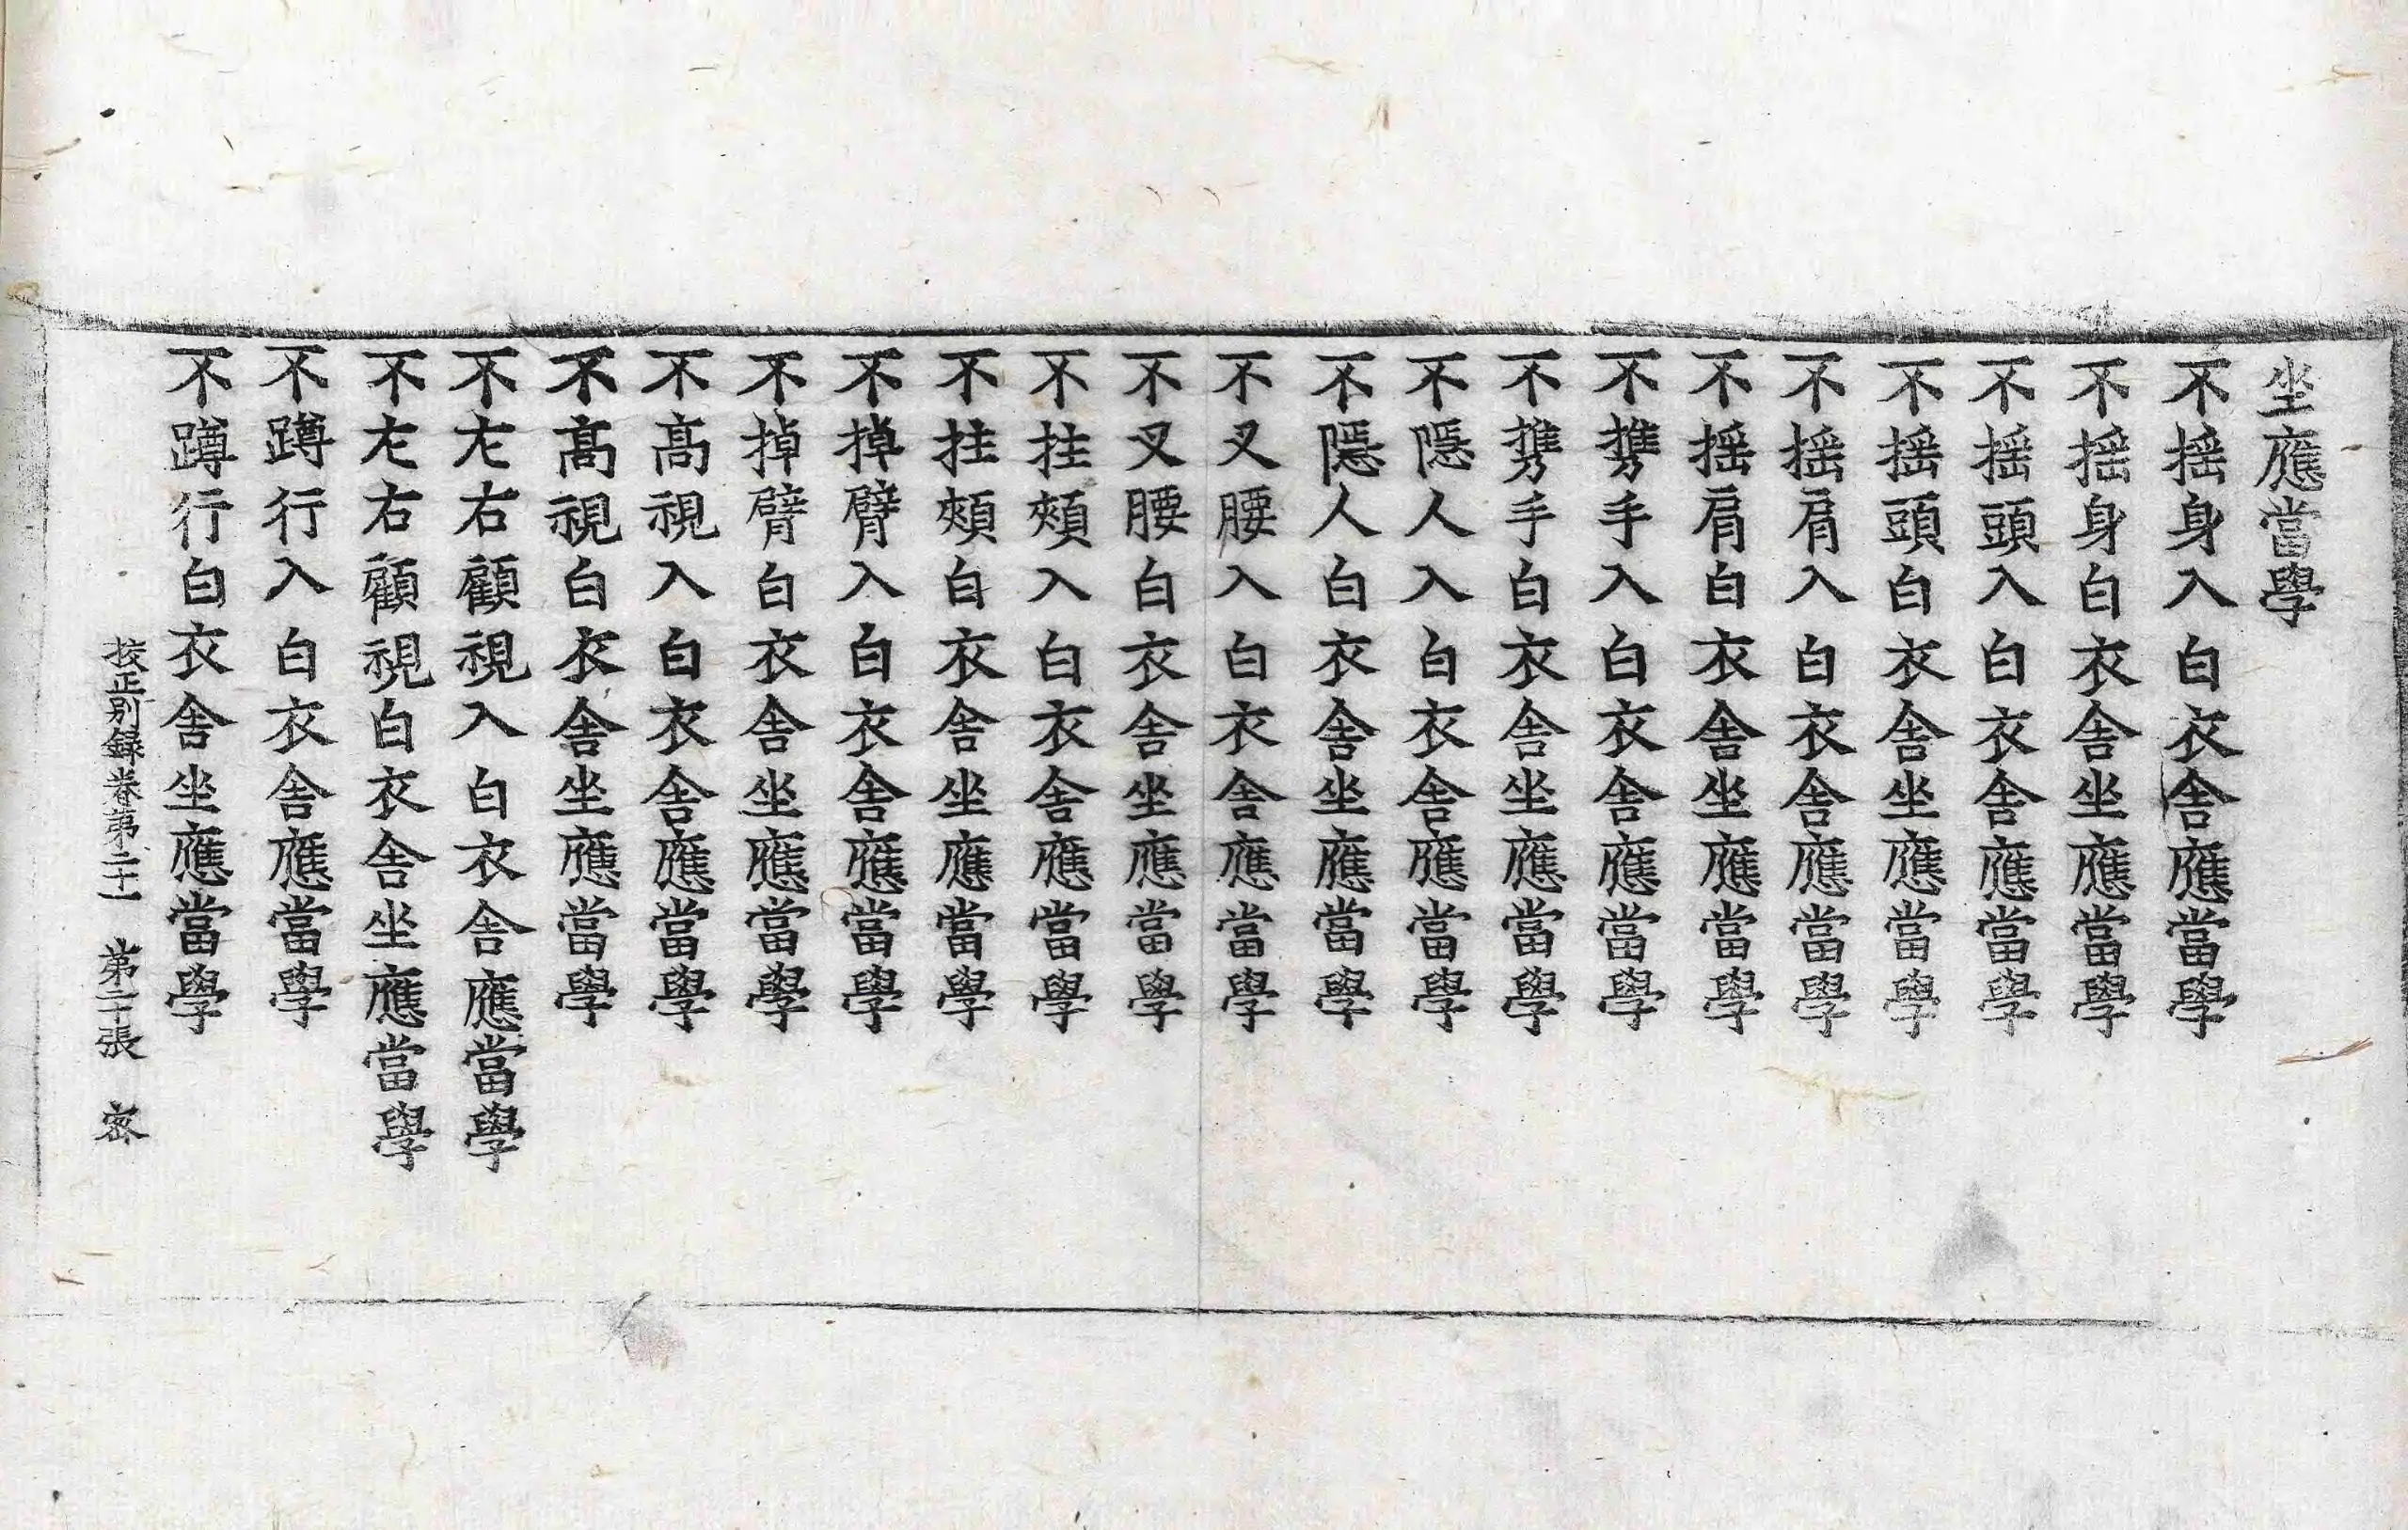 坐應當學
不揺身入白衣舎應當學
不揺身白衣舎坐應當學
不揺頭入白衣舎應當學
不揺頭白衣舎坐應當學
不揺肩入白衣舎應當學
不揺肩白衣舎坐應當學
不携手入白衣舎應當學
不携手白衣舎坐應當學
不隱人入白衣舎應當學
不隱人白衣舎坐應當學
不叉腰入白衣舎應當學
不叉腰白衣舎坐應當學
不拄頰入白衣舎應當學
不拄頰白衣舎坐應當學
不掉臂入白衣舎應當學
不掉臂白衣舎坐應當學
不髙視入白衣舎應當學
不髙視白衣舎坐應當學
不左右顧視入白衣舎應當學
不左右顧視白衣舎坐應當學
不蹲行入白衣舎應當學
不蹲行白衣舎坐應當學
校正別録卷第二十一 第二十張 宻